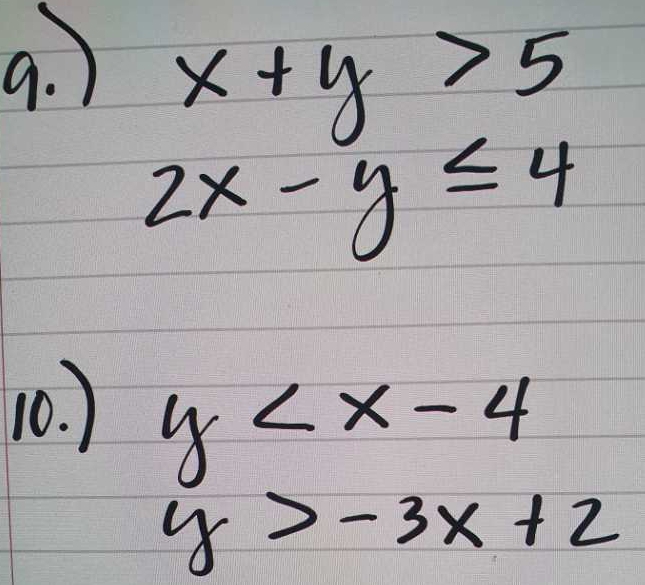 9.) x + y > 5
2x - y ≤ 4
10.) y < x - 4
y > -3x + 2